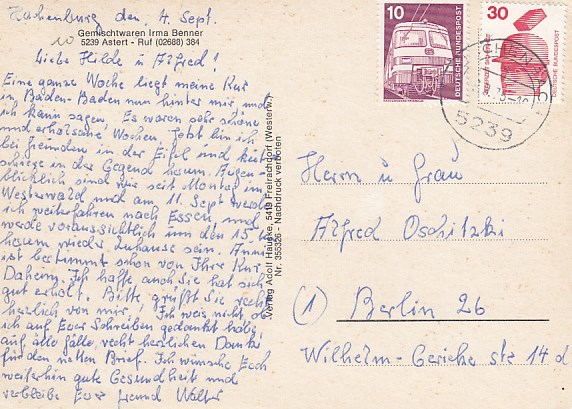 Hachenburg den, 4. Sept.
Gemischtwaren Irma Benner
5239 Astert - Ruf (02688) 384
Liebe Hilde u Alfred!
Eine ganze Woche liegt meine Kur
in Baden-Baden nun hinter mir und
ich kann sagen, Es waren sehr schöne
und erholsame Wochen. Jetzt bin ich
bei Freunden in der Eifel und
in der Gegend herum. Augen-
blicklich, sind wir seit Montag im
Westerwald und am 11. Sept werde
ich weiterfahren nach Essen und
werde voraussichtlich um den 15.
herum wieder zuhause sein. Anni
ist bestimmt schon von Ihrer Kur
Daheim. Ich hoffe auch Sie hat sich
gut erholt. Bitte, grüßt Sie recht
herzlich von mir! Ich weis nicht ob
ich auf Euer Schreiben gedankt habe,
auf alle fälle, recht herzlichen Dank
für den netten Brief. Ich wünsche Euch
weiterhin gute Gesundheit und
verbleibe Euer Freund Walter
Verlag Adolf Hauske, 5419 Freirachdorf (Westerw.)
Nr. 355326 Nachdruck verboten
10
DEUTSCHE BUNDESPOST
30
DEUTSCHE BUNDESPOST
5239
Herrn u Frau
Alfred Oschitzki
(1) Berlin 26
Wilhelm-Gericke str 14 d